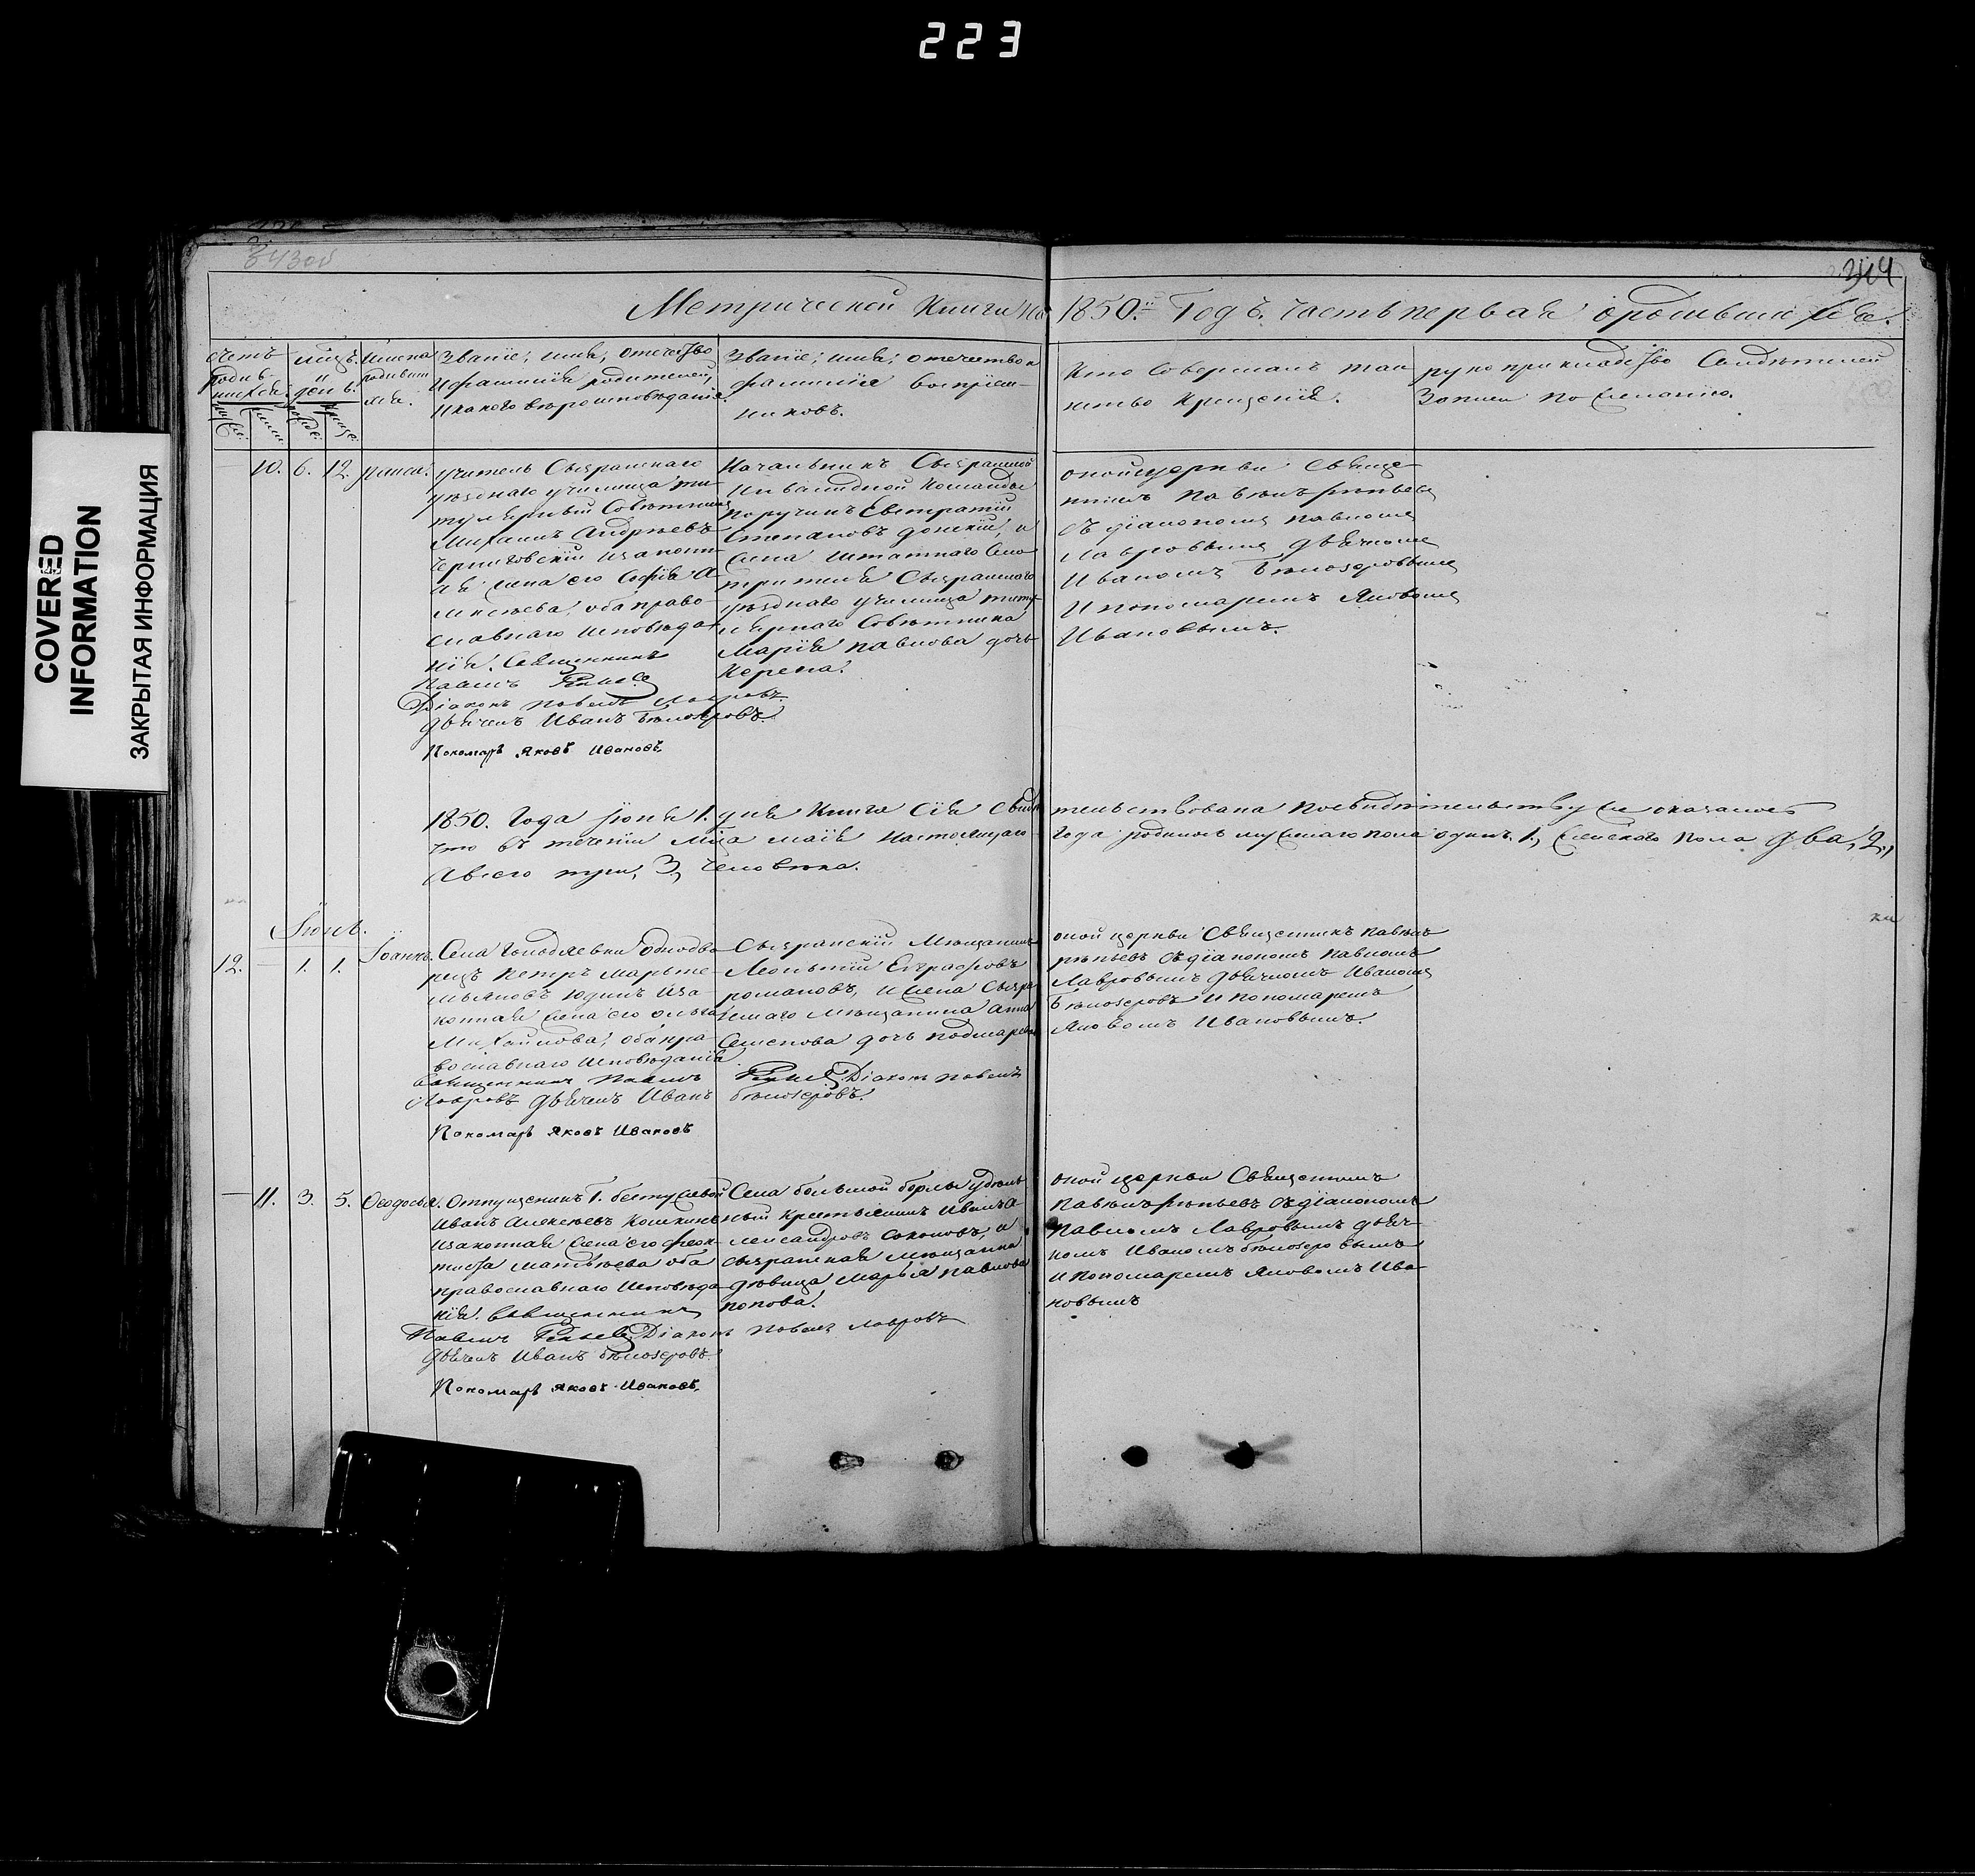 223
COVERED
INFORMATION
ЗАКРЫТАЯ ИНФОРМАЦИЯ
343об
344
Метрической Книги на 1850й Годъ. Часть первая ородившихся.
Счетъ родив-
шихся.
Мѣцъ. и
дни.
Имена
родивших
ся.
Званіе, имя, отечество
и фамилія родителей,
и какого вѣроисповѣданія.
Званіе, имя, отечество и
фамилія воспріем-
никовъ.
Кто совершалъ таи
нство крещенія.
рукоприкладство Свидѣтелей
записи по желанію.
10. 6. 12.
учитель Сызранскаго
уѣзднаго училища ти
тулярный Совѣтникъ
Михаилъ Андреевъ
Черниговскій и законн
ая жена его Софія А
лексѣева, оба право
славнаго исповѣда
нія. Священникъ
Павелъ
Діаконъ Павелъ Лавровъ
дьячекъ Иванъ Бѣлозеровъ.
Пономарь Яковъ Ивановъ.
Начальникъ Сызранской
Инвалидной Команды
Поручикъ Евстратій
Степановъ донскій, и
жена штатнаго Смо
трителя Сызранскаго
уѣзднаго училища титу
лярнаго Совѣтника
Марія Павлова дочь
оной церкви Свяще
нникъ Павелъ
съ діакономъ Павломъ
Лавровымъ, дьячкомъ
Иваномъ Бѣлозеровымъ
и пономаремъ Яковомъ
Ивановымъ.
1850. Года Іюня 1. дня Книга сія свидѣтельствована по свидѣтельству же оказалось
что въ теченіи Мца маія настоящаго года родилось мужескаго пола одинъ. 1., женскаго пола два, 2.,
Авсего три, 3, человѣка.
Іюнь.
12. — 1. 1. Іоаннъ.
Села одновдо
рецъ Петръ Марте
мьяновъ Юдинъ и за
конная жена его Ольга
Михайлова, оба пра
вославнаго исповѣданія
Священникъ Павелъ
Діаконъ Павелъ
Лавровъ дьячекъ Иванъ Бѣлозеровъ.
Пономарь Яковъ Ивановъ
Сызранскій Мѣщанинъ
Леонтій Евграфовъ
романовъ, и жена Сызра
нскаго Мѣщанина Анна
Семенова дочь
оной церкви Священникъ Павелъ
съ діакономъ Павломъ
Лавровымъ дьячкомъ Иваномъ
Бѣлозеровъ и пономаремъ
Яковомъ Ивановымъ.
— 11. 3. 5. Ѳеодосья.
Отпущеникъ Г. бестужевой
Иванъ Алексѣевъ Кошкинъ
и законная жена его Ѳеок
тиста Матвѣева оба
православнаго исповѣда
нія. Священникъ
Павелъ Діаконъ Павелъ Лавровъ
дьячекъ Иванъ Бѣлозеровъ.
Пономарь Яковъ Ивановъ.
Села большой борлы удѣль
ный крестьянинъ Иванъ А
лександровъ Соколовъ, и
сызранская мѣщанка
дѣвица Марья Павлова
попова.
оной церкви Священникъ
Павелъ съ діакономъ
Павломъ Лавровымъ дьяч
комъ Иваномъ Бѣлозеровымъ
и пономаремъ Яковомъ Ива
новымъ